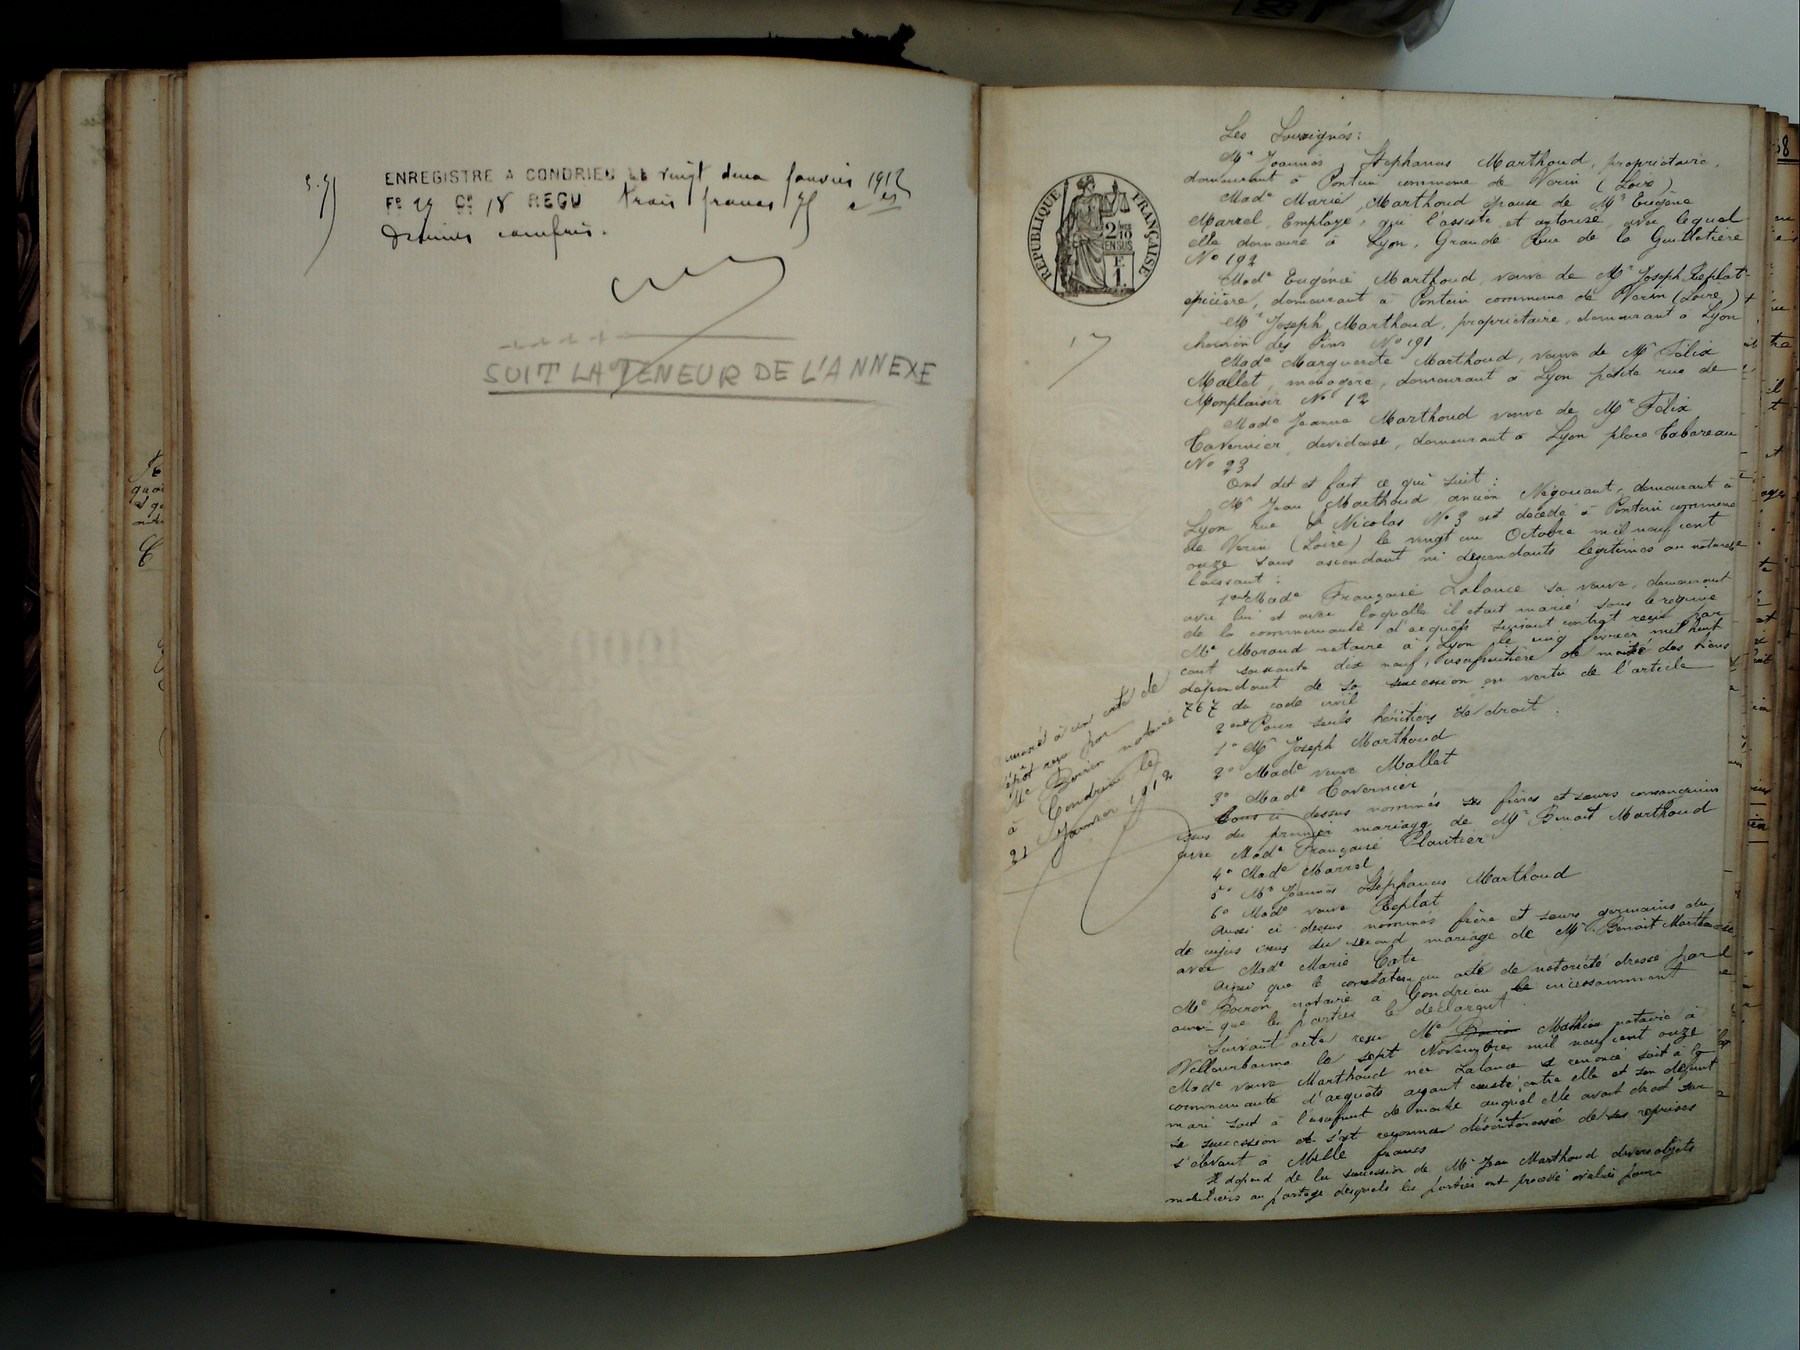 3.75
ENREGISTRÉ A CONDRIEU LE vingt deux Janvier 1912
F° 29 C° 18 REÇU trois francs 75 ces
décimes compris.
SUIT LA TENEUR DE L'ANNEXE
RÉPUBLIQUE FRANÇAISE
2/10 EN SUS
F. 1.
Les Soussignés:
Mr Joannès Stéphanus Marthoud, propriétaire,
demeurant à Pontin commune de Verin (Loire)
Made Marie Marthoud épouse de Mr Eugène
Marrel, Employé, qui l'assiste et autorise, avec lequel
elle demeure à Lyon, Grande Rue de la Guillotière
No 192
Made Eugénie Marthoud, veuve de Mr Joseph Replat
épicière, demeurant à Pontin commune de Verin (Loire)
Mr Joseph Marthoud, propriétaire, demeurant à Lyon
chemin des Pins No 191
Made Marguerite Marthoud, veuve de Mr Félix
Mallet, ménagère, demeurant à Lyon petite rue de
Monplaisir No 12
Made Jeanne Marthoud veuve de Mr Félix
Tavernier, dévideuse, demeurant à Lyon place Tabareau
No 23
Ont dit et fait ce qui suit:
Mr Jean Marthoud ancien Négociant, demeurant à
Lyon rue St Nicolas No 3 est décédé à Pontin commune
de Verin (Loire) le vingt un Octobre mil neuf cent
onze sans ascendant ni descendants légitimes ou naturels
laissant:
1ent Made Françoise Lalance sa veuve, demeurant
avec lui et avec laquelle il était marié sous le régime
de la communauté d'acquêts suivant contrat reçu par
Me Morand notaire à Lyon le cinq février mil huit
cent soixante dix neuf, usufruitière de moitié des biens
dépendant de sa succession en vertu de l'article
767 du code civil
2ent Pour seuls héritiers de droit.
1° Mr Joseph Marthoud
2° Made veuve Mallet
3° Made Tavernier
Tous ci dessus nommés ses frères et sœurs consanguins
issus du premier mariage de Mr Benoit Marthoud
avec Made Françoise Plautier
4° Made Marrel
5° Mr Joannès Stéphanus Marthoud
6° Made veuve Replat
Aussi ci dessus nommés frère et sœurs germains du
de cujus issus du second mariage de Mr Benoit Marthoud
avec Made Marie Cote
Ainsi que le constatera un acte de notoriété dressé par
Me Boiron notaire à Condrieu incessamment
ainsi que les parties le déclarent.
Suivant acte reçu Me Boiron Mathieu notaire à
Villeurbanne le sept Novembre mil neuf cent onze
Made veuve Marthoud née Lalance a renoncé soit à la
communauté d'acquêts ayant existé entre elle et son défunt
mari soit à l'usufruit de moitié auquel elle avait droit sur
sa succession et s'est reconnue désintéressée de ses reprises
s'élevant à Mille francs
Il dépend de la succession de Mr Jean Marthoud divers objets
mobiliers au partage desquels les parties ont procédé évalués pour
annexé à un acte de
dépôt reçu par
Me Boiron notaire
à Condrieu le
21 Janvier 1912